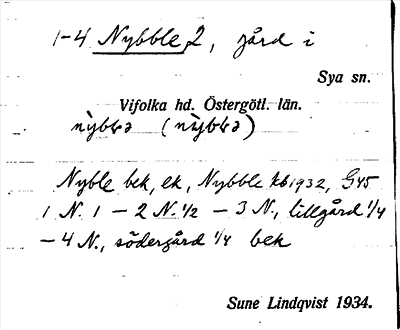 1-4 Nybble 2, gård i
Sya sn.
Vifolka hd. Östergötl. län.
nỳbbə (nỳbbə)
Nyble bek, ek, Nybble kb 1932, G45
1 N. 1 — 2 N. 1/2 — 3 N., lillgård 1/4
— 4 N., södergård 1/4 bek
Sune Lindqvist 1934.